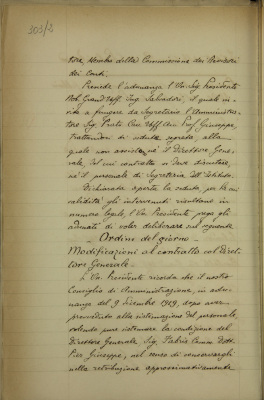 303/2
tore, Membro della Commissione dei Revisori
dei Conti.
Presiede l'adunanza l'On. Sig. Presidente
Nob. Grand'Uff. Ing. Salvadori, il quale in-
vita a fungere da Segretario l'Amministra-
tore Sig. Prati Cav. Uff. Avv. Prof. Giuseppe,
trattandosi di seduta segreta, alla
quale non assiste nè il Direttore Gene-
rale, del cui contratto si deve discutere,
nè il personale di Segreteria dell'Istituto.
Dichiarata aperta la seduta per la
validità gli intervenuti risultano in
numero legale, l'On. Presidente prega gli
adunati di voler deliberare sul seguente
- Ordine del giorno -
Modificazioni al contratto col Diret-
tore Generale.
L'On. Presidente ricorda che il nostro
Consiglio di Amministrazione, in adu-
nanza del 9 Dicembre 1919, dopo aver
provveduto alla sistemazione del personale,
volendo pure sistemare la condizione del
Direttore Generale Sig. Dott.
Pier Giuseppe, nel senso di
nella retribuzione approssimativamente